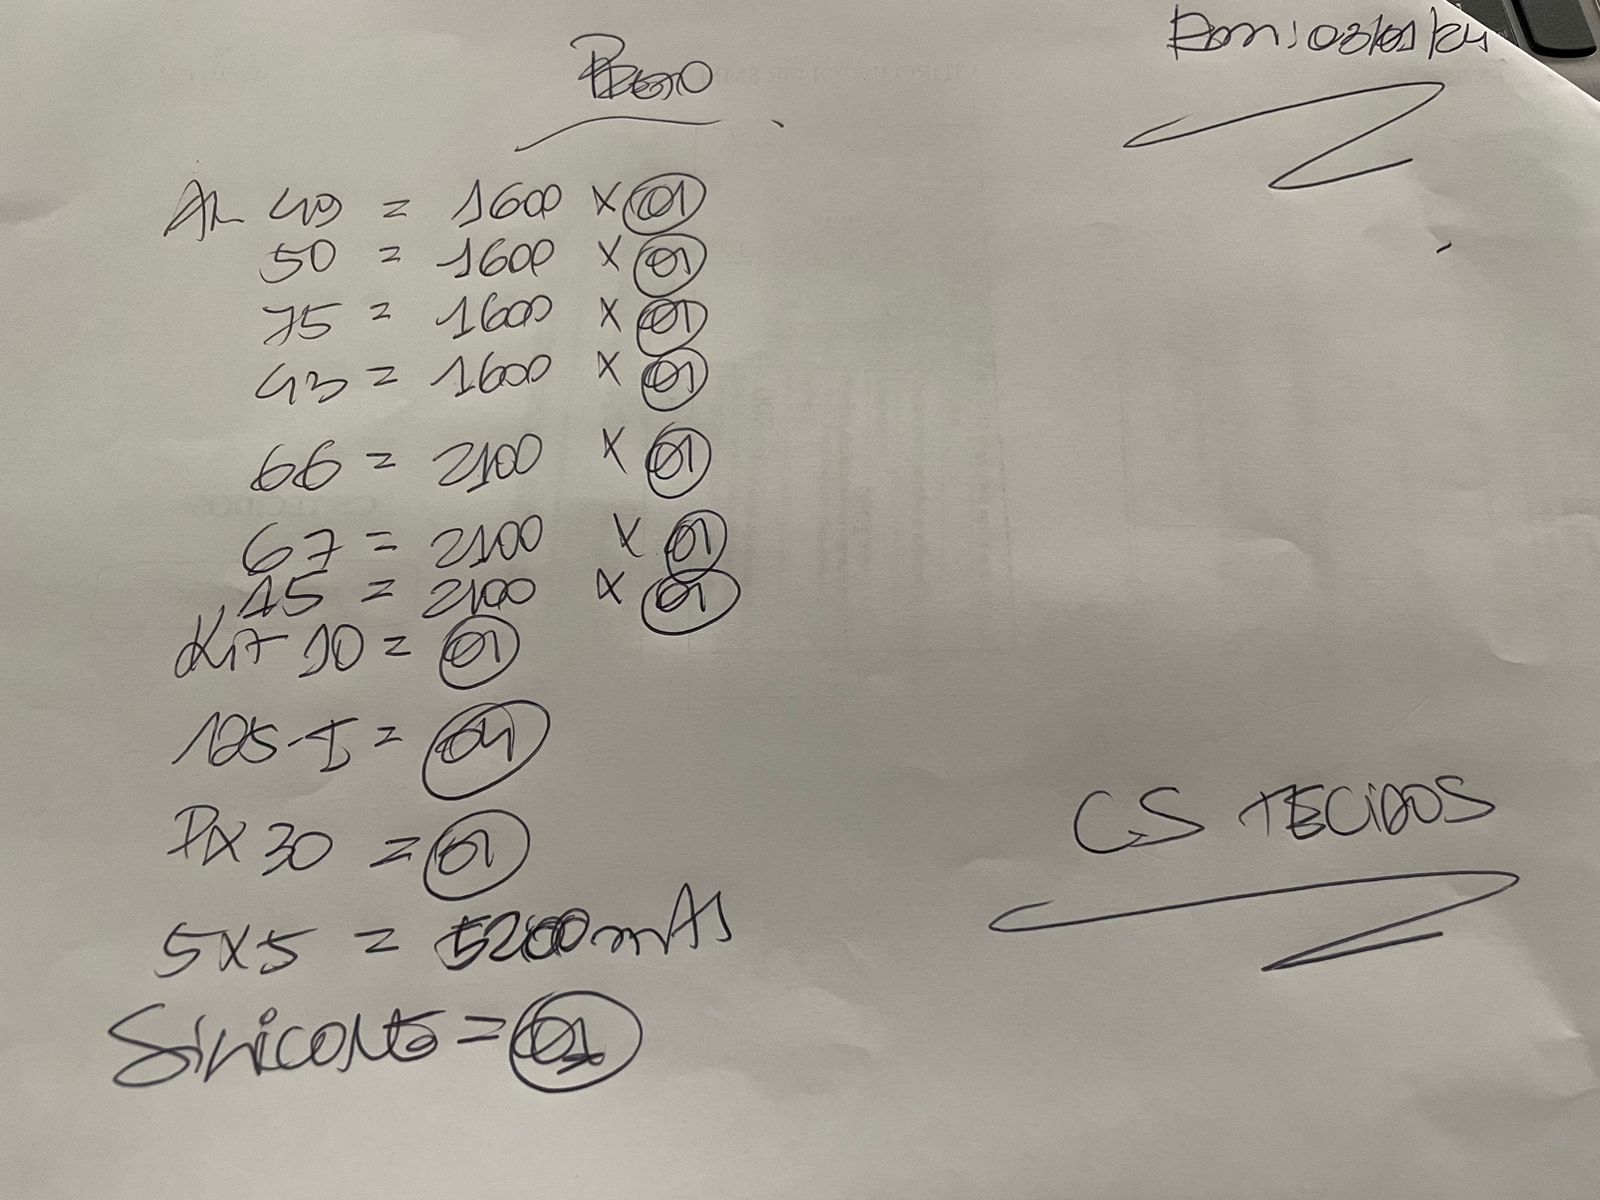 03/01/24
AL 49 = 1600 x 01
50 = 1600 x 01
75 = 1600 x 01
43 = 1600 x 01
66 = 2100 x 01
67 = 2100 x 01
45 = 2100 x 01
Kit 10 = 01
125-I = 04
PX 30 = 01
5x5 = 5200
Silicone = 01
CS TECIDOS